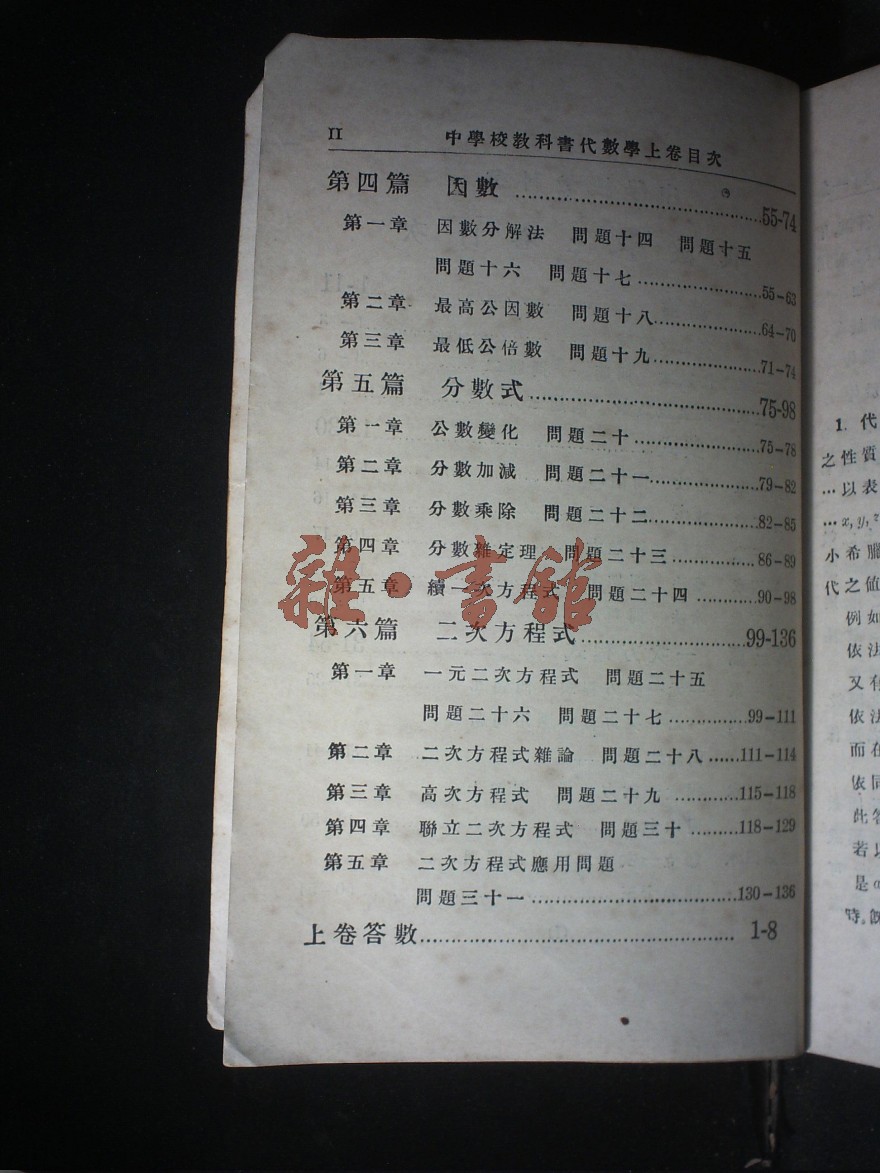 II 中學校教科書代數學上卷目次
第四篇 因數 ........................ 55-74
第一章 因數分解法 問題十四 問題十五
問題十六 問題十七 ............... 55-63
第二章 最高公因數 問題十八 ............... 64-70
第三章 最低公倍數 問題十九 ............... 71-74
第五篇 分數式 ........................ 75-98
第一章 公數變化 問題二十 ............... 75-78
第二章 分數加減 問題二十一 ............... 79-82
第三章 分數乘除 問題二十二 ............... 82-85
第四章 分數雜定理 問題二十三 ............... 86-89
第五章 續一次方程式 問題二十四 ............ 90-98
第六篇 二次方程式 ........................ 99-136
第一章 一元二次方程式 問題二十五
問題二十六 問題二十七 ............... 99-111
第二章 二次方程式雜論 問題二十八 ...... 111-114
第三章 高次方程式 問題二十九 ............ 115-118
第四章 聯立二次方程式 問題三十 ......... 118-129
第五章 二次方程式應用問題
問題三十一 ........................ 130-136
上卷答數 ........................ 1-8
雜·書館
1. 代
之性質
…以表
…x, y, z
小希臘
代之値
例如
依法
又有
依法
而在
依同
此答
若以
是
時。